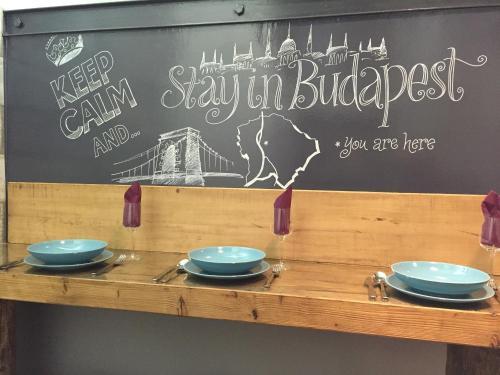 KEEP
CALM
AND...
Stay in Budapest
* you are here